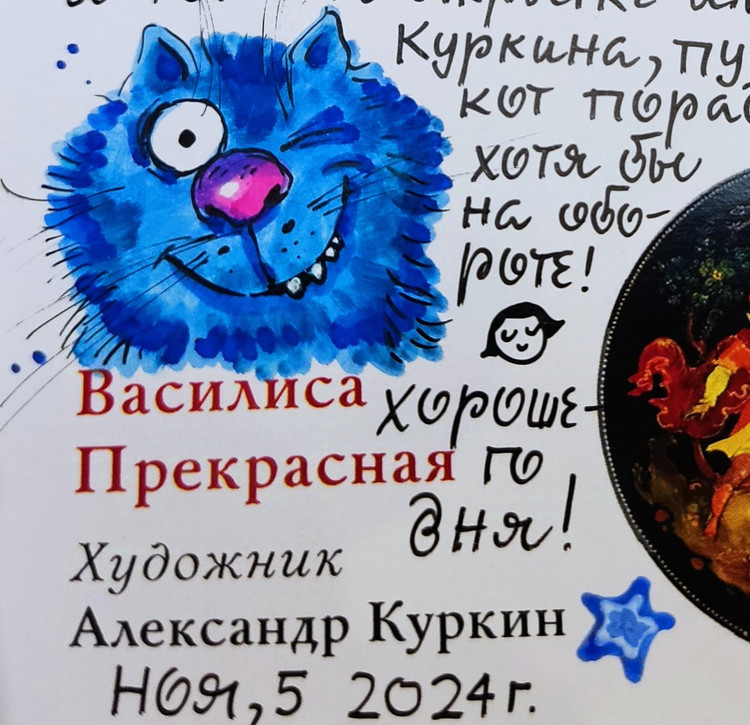 Куркина, пу
кот пораб
хотя бы
на обо-
роте!
Хороше-
го
дня!
Василиса
Прекрасная
Художник
Александр Куркин
Ноя, 5 2024 г.